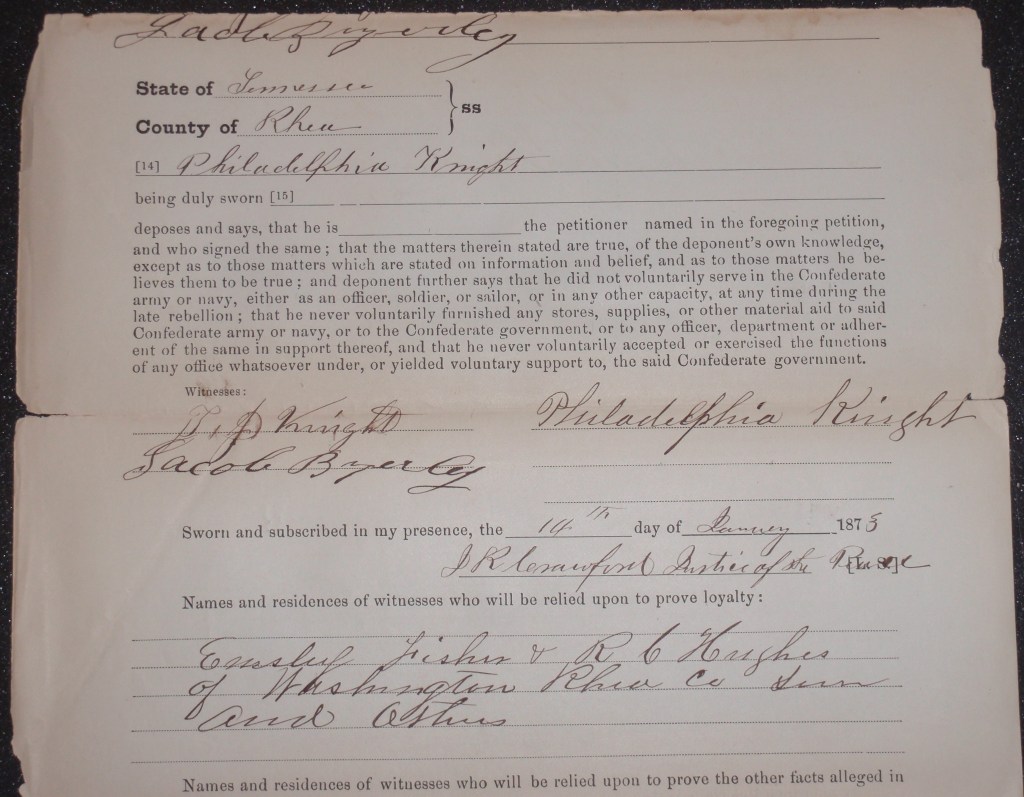 Jacob Byerley
State of Tennessee
County of Rhea
ss
[14] Philadelphia Knight
being duly sworn [15]
deposes and says, that he is the petitioner named in the foregoing petition,
and who signed the same; that the matters therein stated are true, of the deponent's own knowledge,
except as to those matters which are stated on information and belief, and as to those matters he be-
lieves them to be true; and deponent further says that he did not voluntarily serve in the Confederate
army or navy, either as an officer, soldier, or sailor, or in any other capacity, at any time during the
late rebellion; that he never voluntarily furnished any stores, supplies, or other material aid to said
Confederate army or navy, or to the Confederate government, or to any officer, department or adher-
ent of the same in support thereof, and that he never voluntarily accepted or exercised the functions
of any office whatsoever under, or yielded voluntary support to, the said Confederate government.
Witnesses:
T. J. Knight Philadelphia Knight
Jacob Byerley
Sworn and subscribed in my presence, the 14th day of January 1873
J R Crawford Justice of the Peace [L. S.]
Names and residences of witnesses who will be relied upon to prove loyalty:
Emsley Fisher & R C Hughes
of Washington Rhea Co Tenn
and Others
Names and residences of witnesses who will be relied upon to prove the other facts alleged in